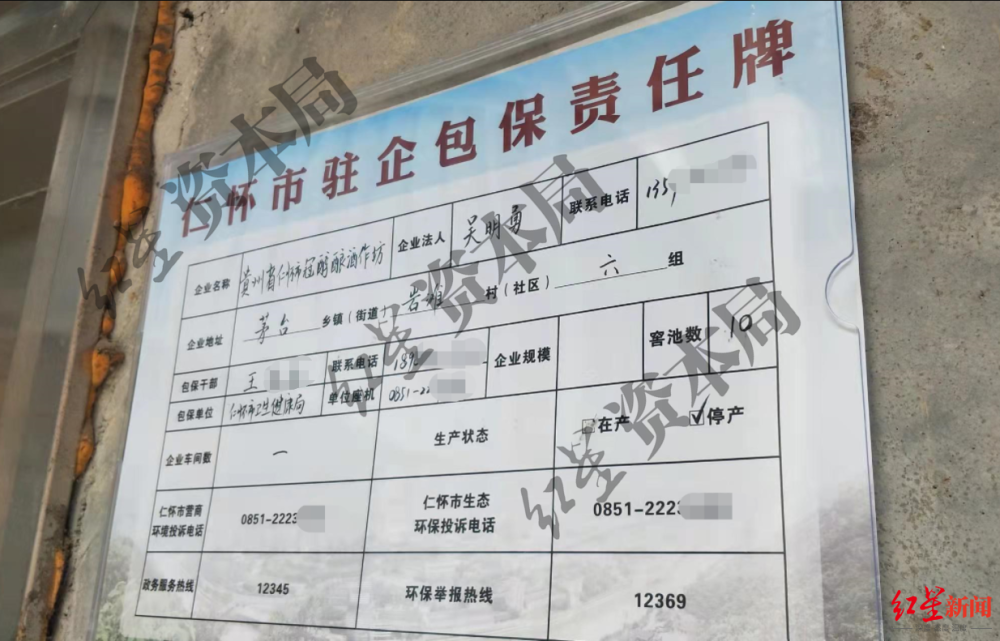 仁怀市驻企包保责任牌
企业名称 贵州省仁怀市 酿酒作坊 企业法人 吴明勇 联系电话 135
企业地址 茅台 乡镇(街道) 岩滩 村(社区) 六 组
包保干部 王 联系电话 189 企业规模 窖池数 10
包保单位 仁怀市卫生健康局 单位座机 0851-22
企业车间数 一 生产状态 在产 ✓停产
仁怀市营商
环境投诉电话 0851-2223 仁怀市生态
环保投诉电话 0851-2223
政务服务热线 12345 环保举报热线 12369
红星资本局
红星资本局
红星资本局
红星新闻